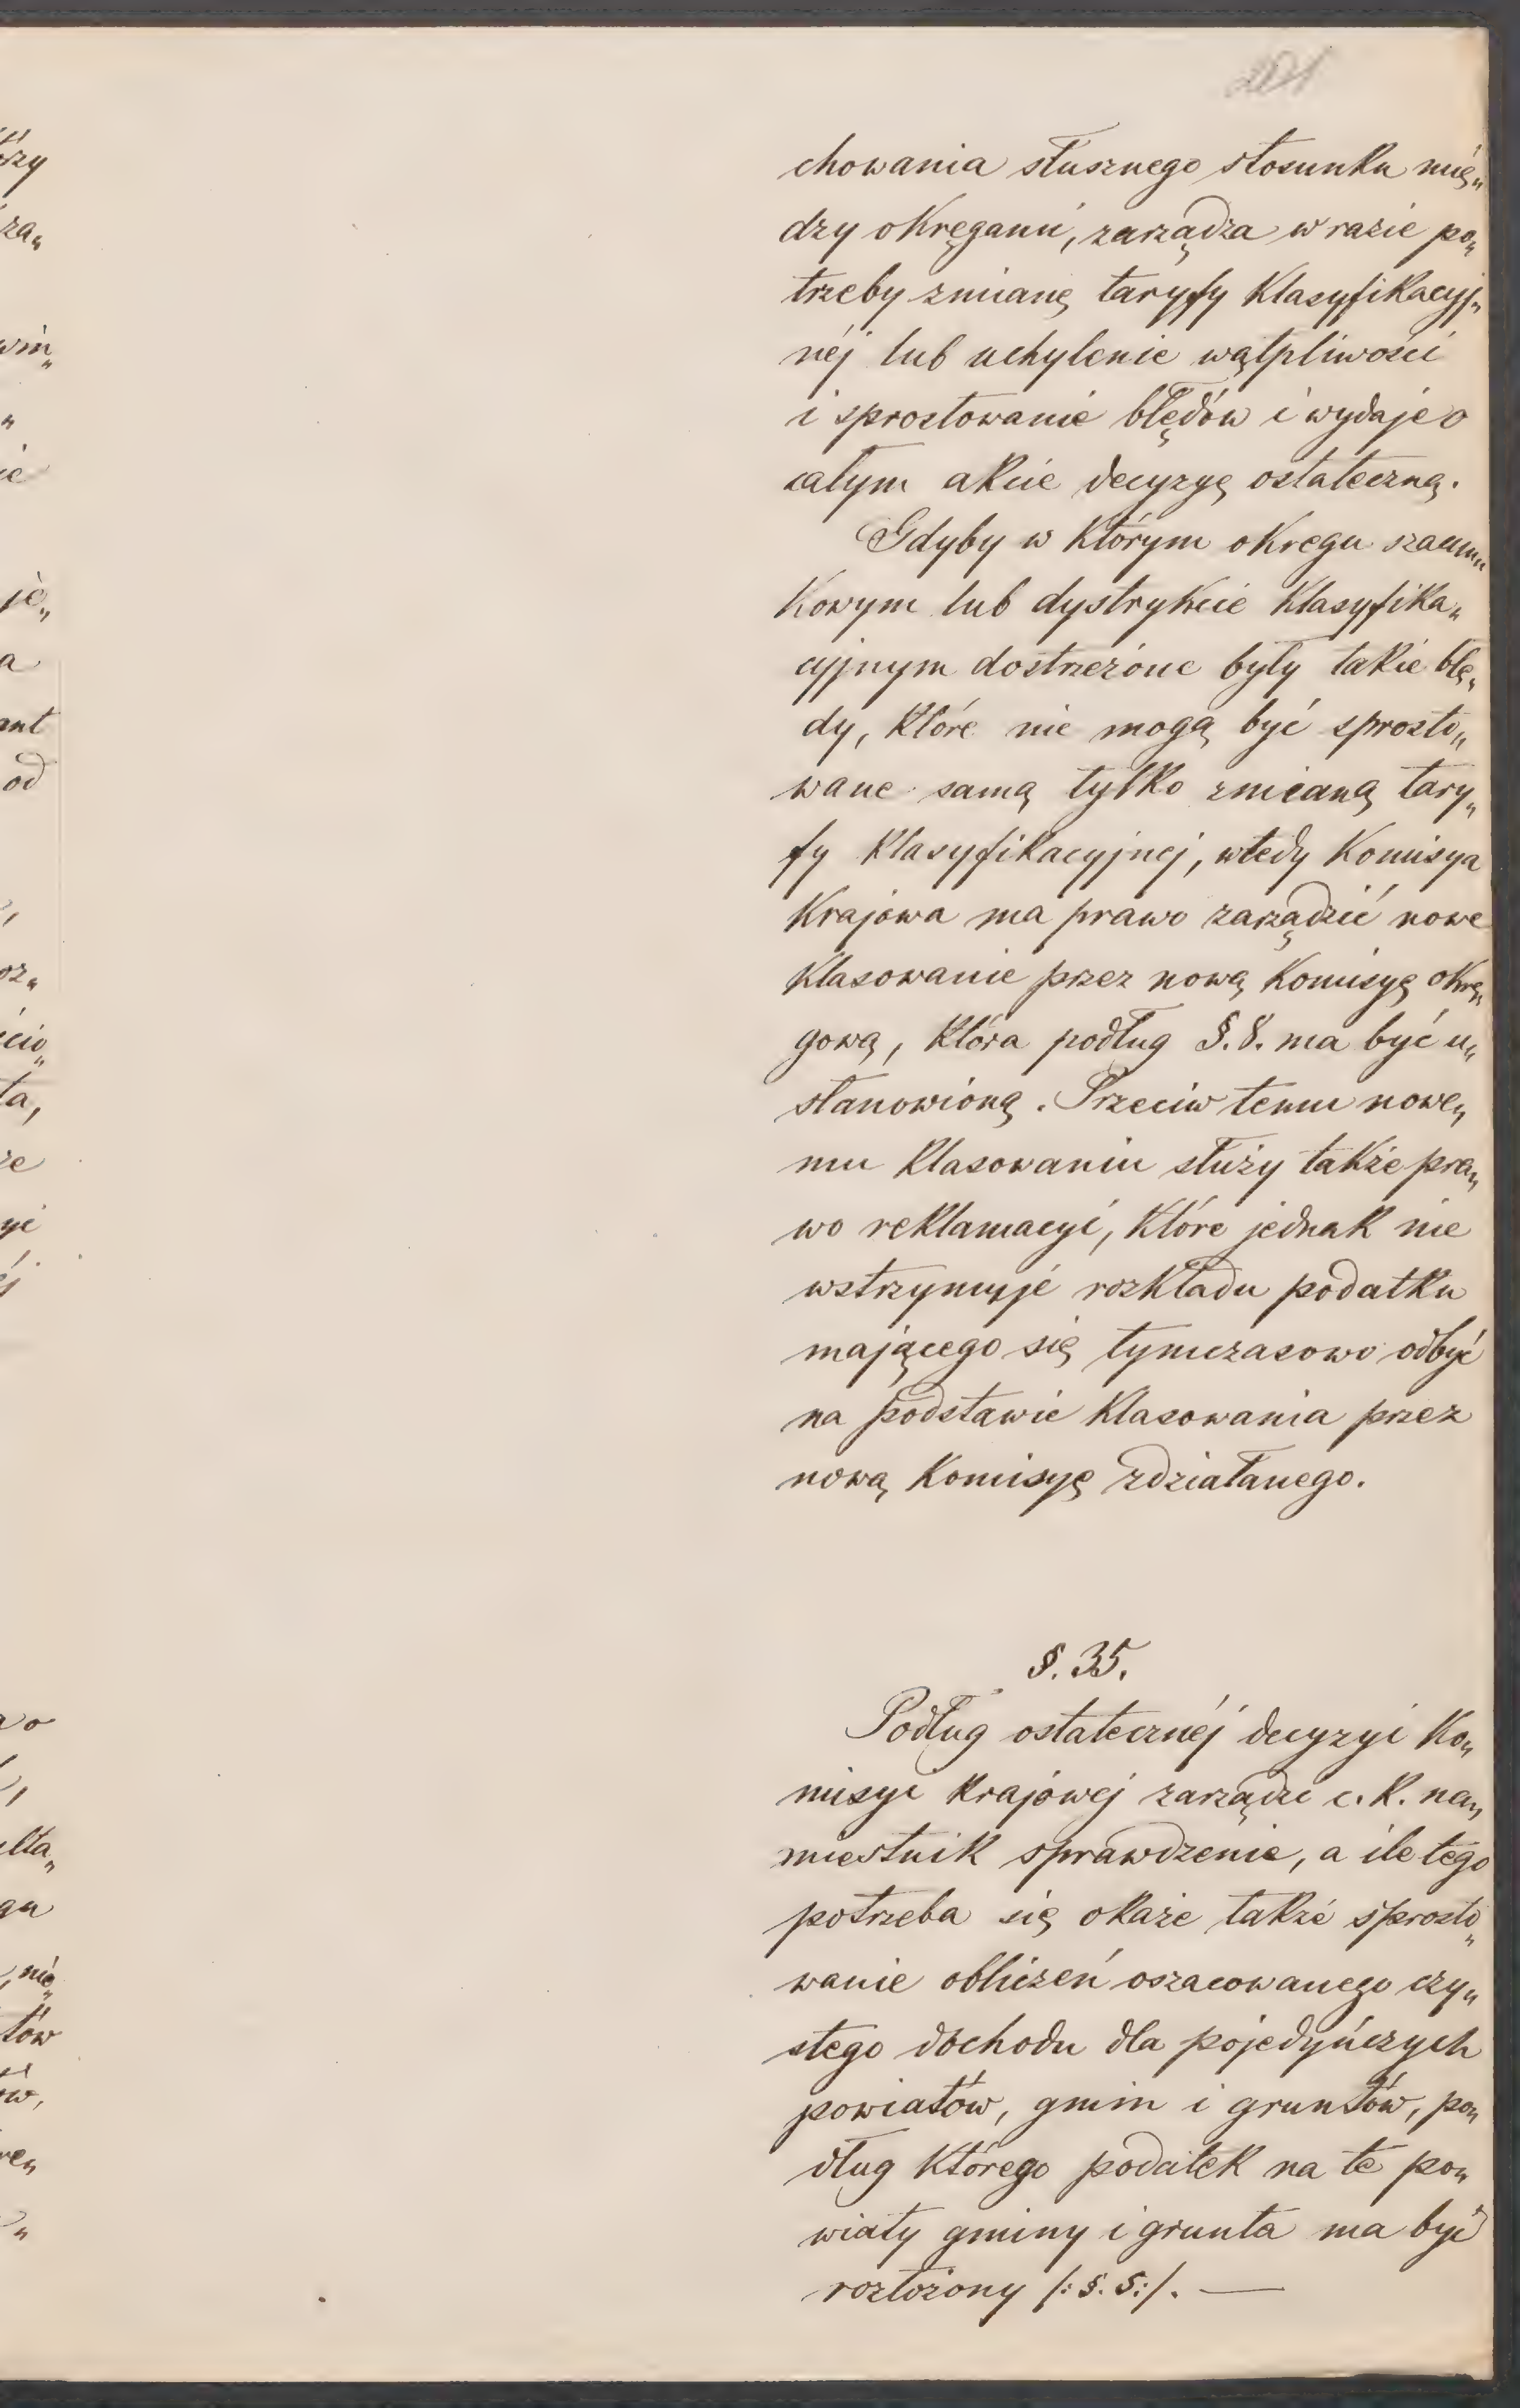 chowania słusznego stosunku mię„
dzy okręgami, zarządza w razie po„
trzeby zmianę taryfy klasyfikacyj„
néj lub uchylenie wątpliwości
i sprostowanie błędów i wydaje o
całym akcie decyzyę ostateczną.
Gdyby w którym okręgu szacun„
kowym lub dystrykcie klasyfika„
cyjnym dostrzeżone były takie błę„
dy, które nie mogą być sprosto„
wane samą tylko zmianą tary„
fy klasyfikacyjnej, wtedy Komisya
Krajowa ma prawo zarządzić nowe
klasowanie przez nową Komisyę okrę„
gową, która podług §. 8. ma być u„
stanowioną. Przeciw temu nowe„
mu klasowaniu służy także pra„
wo reklamacyi, które jednak nie
wstrzymuje rozkładu podatku
mającego się tymczasowo odbyć
na podstawie klasowania przez
nową Komisyę zdziałanego.
§. 35.
Podług ostatecznéj decyzyi Ko„
misyi krajowej zarządzi c. k. na„
miestnik sprawdzenie, a ile tego
potrzeba się okaże także sprosto„
wanie obliczeń oszacowanego czy„
stego dochodu dla pojedyńczych
powiatów, gmin i gruntów, po„
dług którego podatek na te po„
wiaty gminy i grunta ma być
rozłożony /: §. 5:/. —